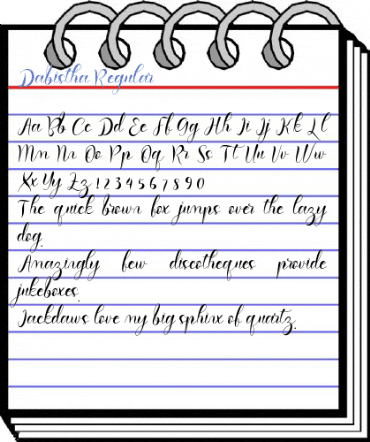 Dabistha Regular
Aa Bb Cc Dd Ee Ff Gg Hh Ii Jj Kk Ll
Mm Nn Oo Pp Qq Rr Ss Tt Uu Vv Ww
Xx Yy Zz 1 2 3 4 5 6 7 8 9 0
The quick brown fox jumps over the lazy
dog.
Amazingly few discotheques provide
jukeboxes.
Jackdaws love my big sphinx of quartz.